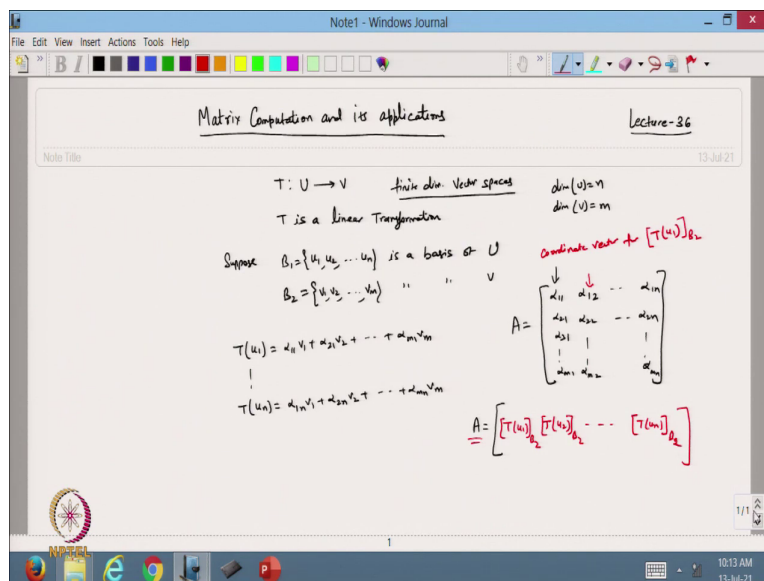 Note1 - Windows Journal
File Edit View Insert Actions Tools Help
Matrix Computation and its applications
Lecture-36
Note Title
13-Jul-21
T: U → V finite dim. vector spaces dim(U)=n
dim(V)=m
T is a linear Transformation
Suppose B₁={u₁, u₂, ... uₙ} is a basis of U
B₂={v₁, v₂, ... , vₘ} " " V
coordinate vector for [T(u₁)]_B₂
T(u₁) = α₁₁v₁+α₂₁v₂+ ··· +αₘ₁vₘ
|
T(uₙ)= α₁ₙv₁+α₂ₙv₂+ ··· +αₘₙvₘ
A= [α₁₁ α₁₂ ·· α₁ₙ
α₂₁ α₂₂ -- α₂ₙ
α₃₁ | |
αₘ₁ αₘ₂ αₘₙ]
A= [[T(u₁)]_B₂ [T(u₂)]_B₂ --- [T(uₙ)]_B₂]
NPTEL
1/1
1
10:13 AM
13-Jul-21